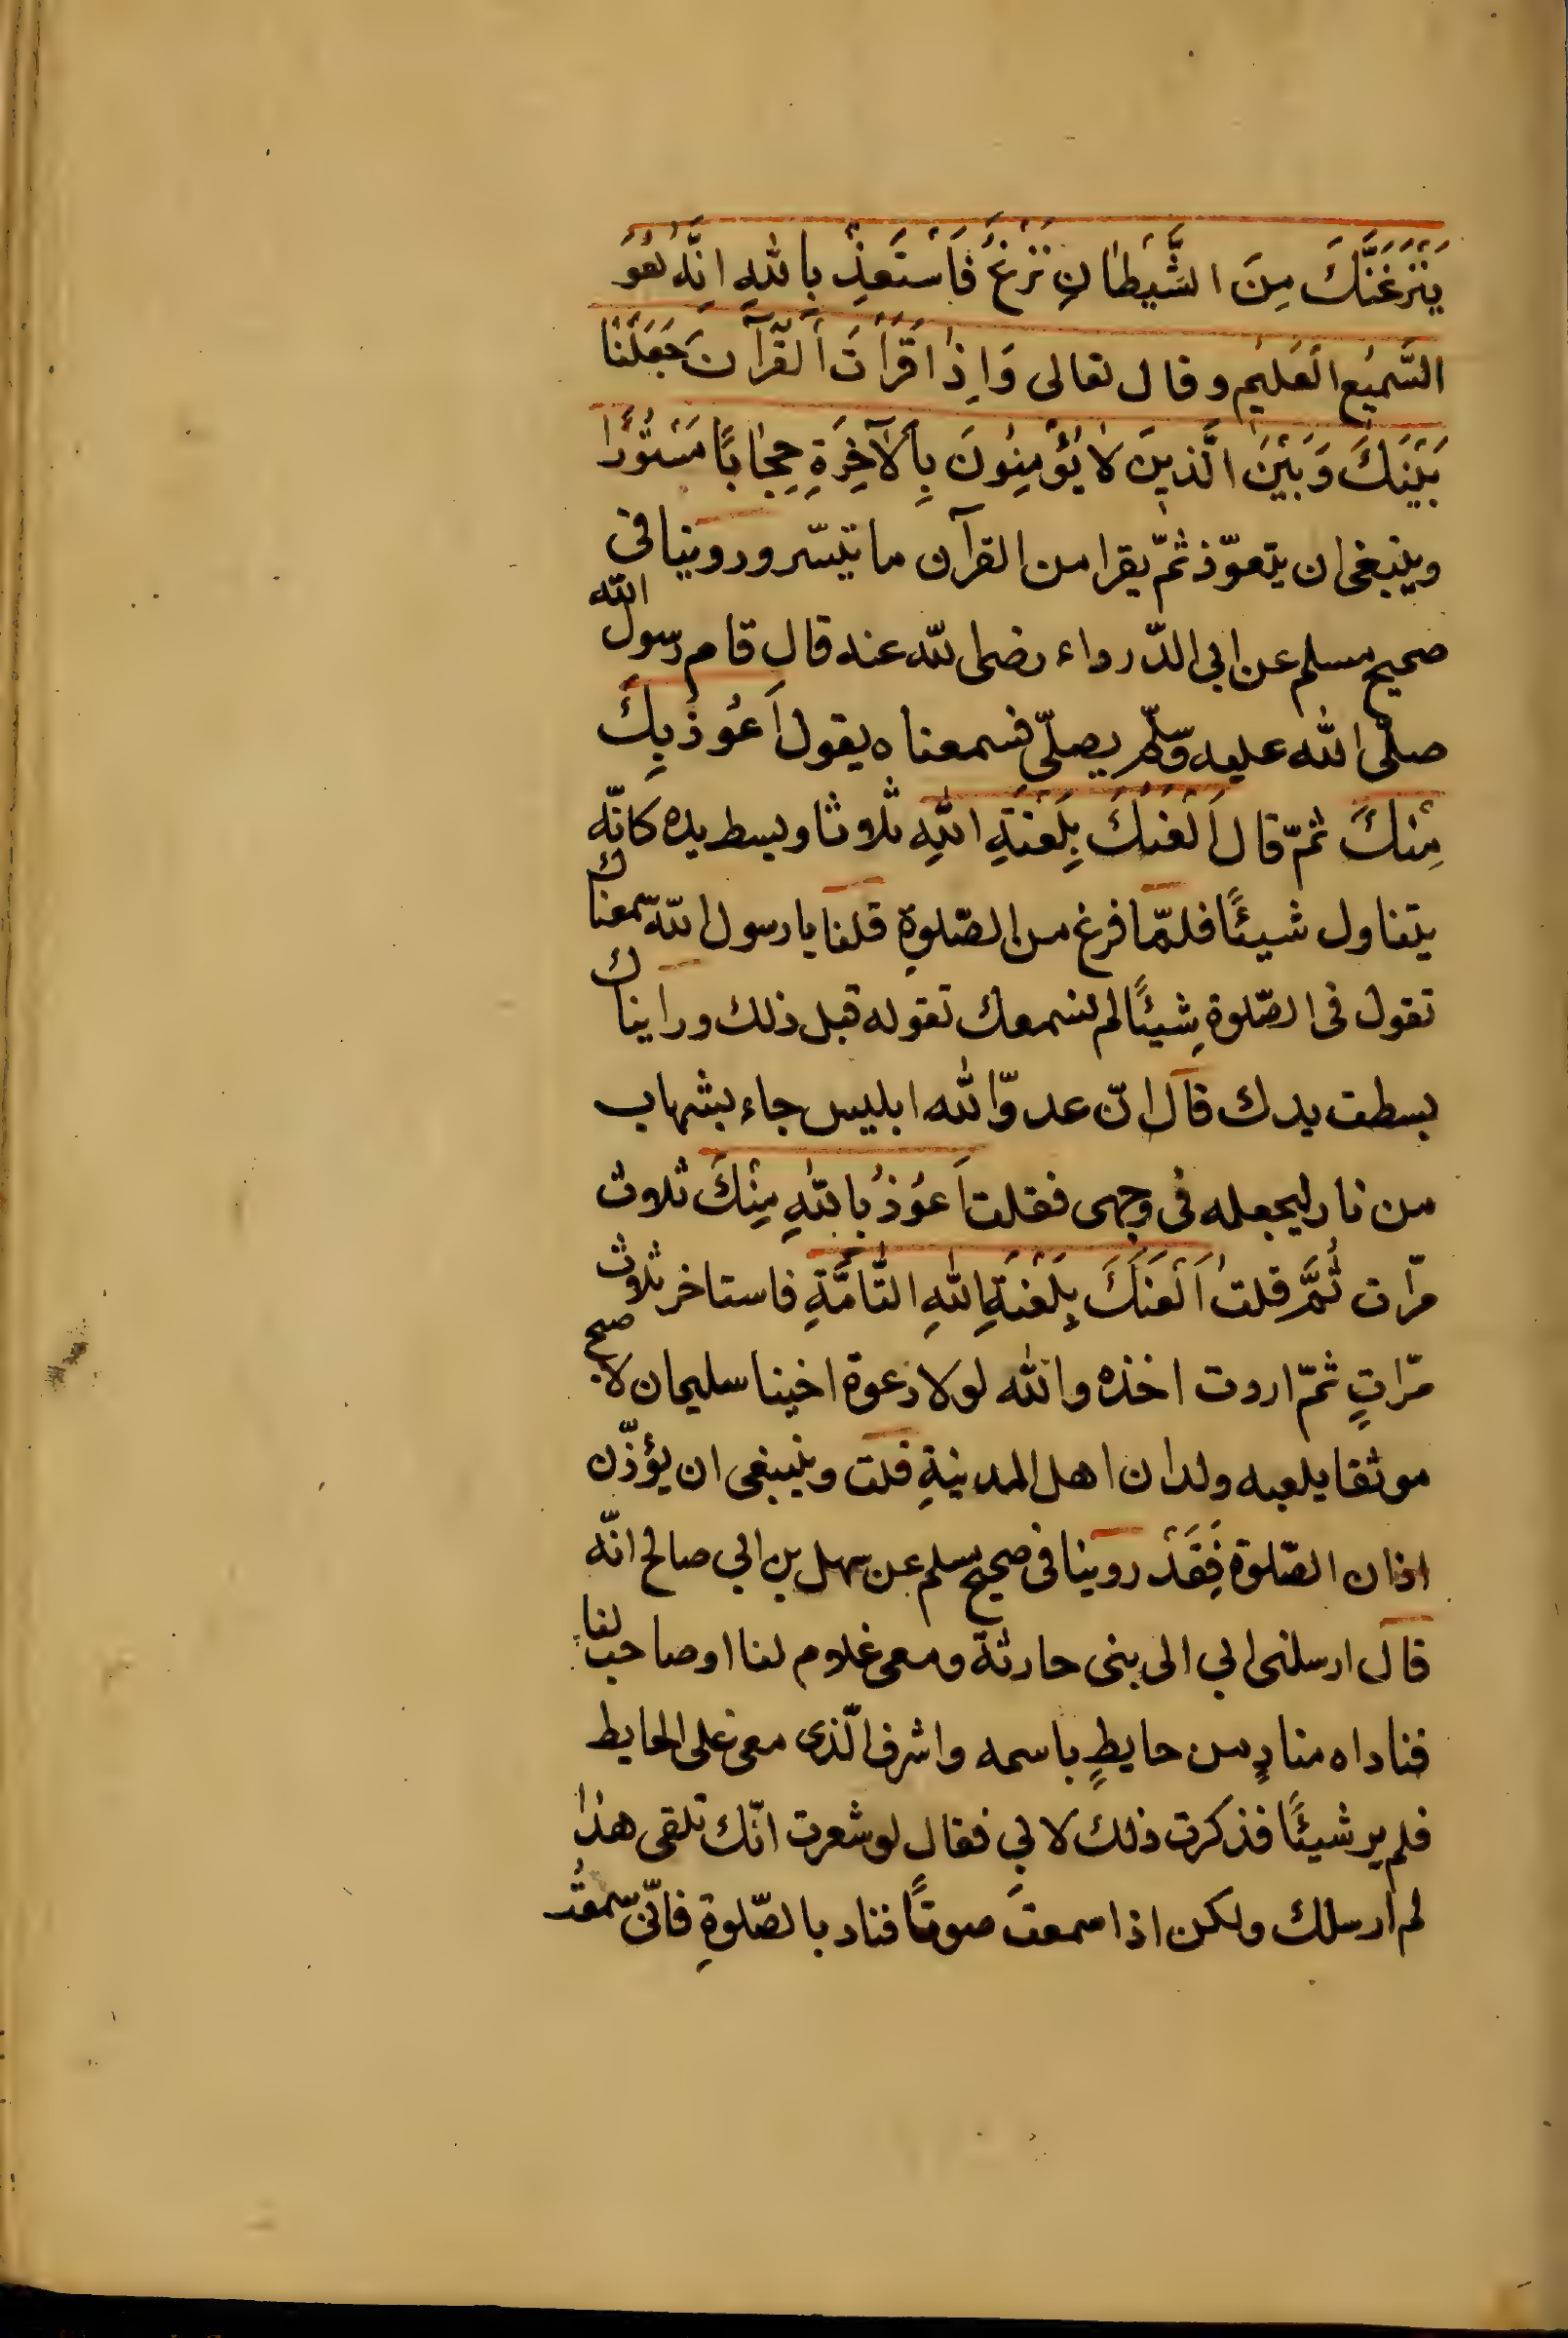 يَنْزَغَنَّكَ مِنَ الشَّيْطَانِ نَزْغٌ فَاسْتَعِذْ بِاللهِ اِنَّهُ هُوَ
السَّمِيْعُ الْعَلِيْم وقال تعالى وَاِذَا قَرَأْتَ الْقُرْآنَ جَعَلْنَا
بَيْنَكَ وَبَيْنَ الَّذِينَ لَا يُؤْمِنُونَ بِالْآخِرَةِ حِجَابًا مَسْتُوْرًا
وينبغى ان يتعوّذ ثمّ يقرا من القرآن ما تيسّر وروينا فى
صحيح مسلم عن ابى الدّرداء رضى الله عنه قال قام رسول الله
صلّى الله عليه وسلّم يصلّى فسمعناه يقول اَعُوْذُ بِكَ
مِنْكَ ثمّ قال اَلْعَنُكَ بِلَعْنَةِ اللهِ ثلاوثا وبسط يده كانّه
يتناول شيئًا فلمّا فرغ من الصّلوةِ قلنا يا رسول الله سمعناك
تقول فى الصّلوة شيئًا لم نسمعك تقوله قبل ذلك وراينا ك
بسطت يدك قال انّ عدوّ الله ابليس جاء بشهاب
من نار ليجعله فى وجهى فقلت اَعُوْذُ بِاللهِ مِنْكَ ثلاوث
مرّات ثُمَّ قلتُ اَلْعَنُكَ بِلَعْنَةِ اللهِ التَّامَّةِ فاستاخر ثلاوث
مرّاتٍ ثمّ اردت اخذه والله لولا دعوة اخينا سليمان لاصبح
موثقا يلعبه ولدان اهل المدينةِ قلت وينبغى ان يؤذّن
اذان الصّلوة فَقَدْ روينا فى صحيح مسلم عن سهل بن ابي صالح انّه
قال ارسلنى ابي الى بنى حارثة ومعى غلام لنا او صاحب لنا
فناداه منادٍ من حايطٍ باسمه واشرف الّذى معى على الحايط
فلم ير شيئًا فذكرت ذلك لابي فقال لو شعرت انّك تلقى هذا
لم ارسلك ولكن اذا سمعتَ صوتًا فناد بالصّلوةِ فانّى سمعتُ